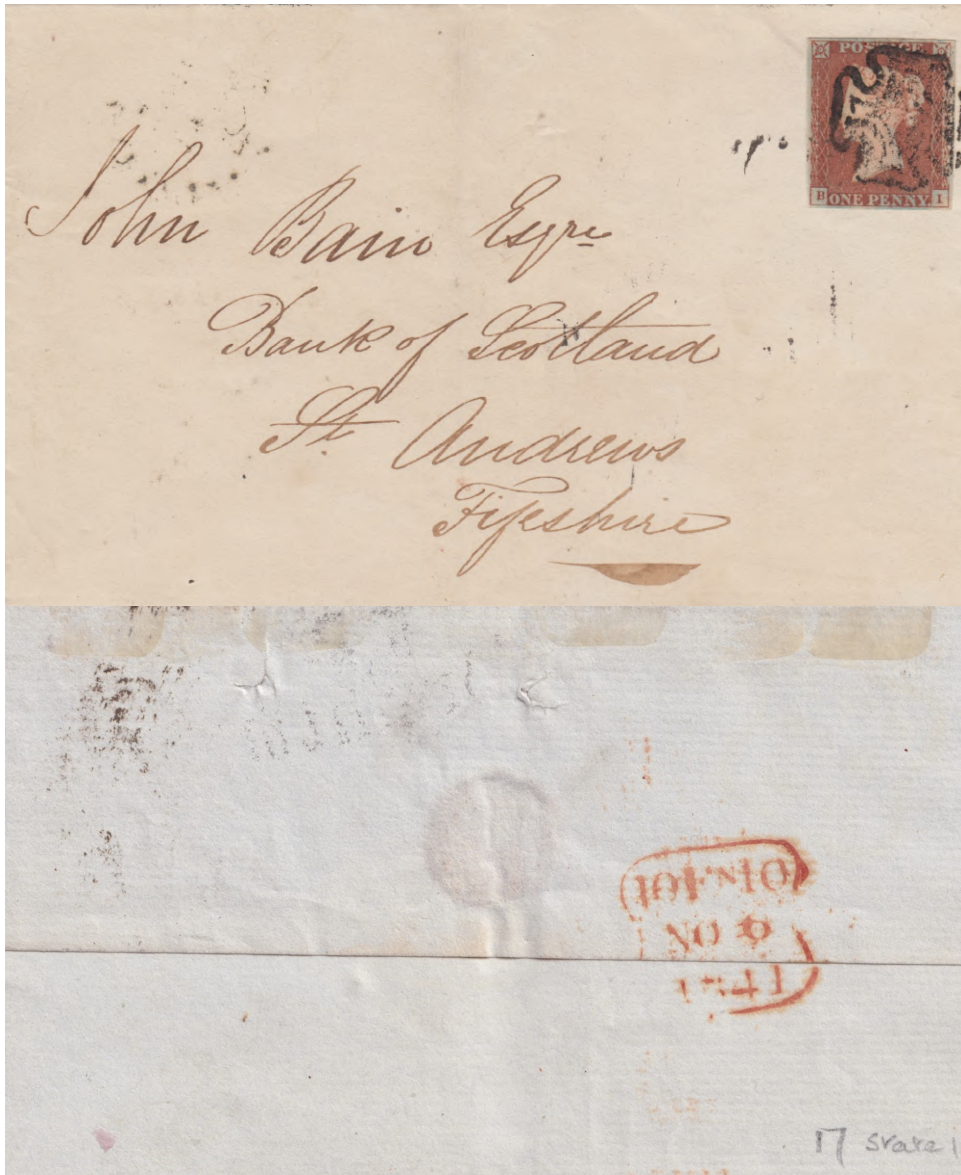 POSTAGE
B ONE PENNY I
John Bain Esqre
Bank of Scotland
St Andrews
Fifeshire
1841
17